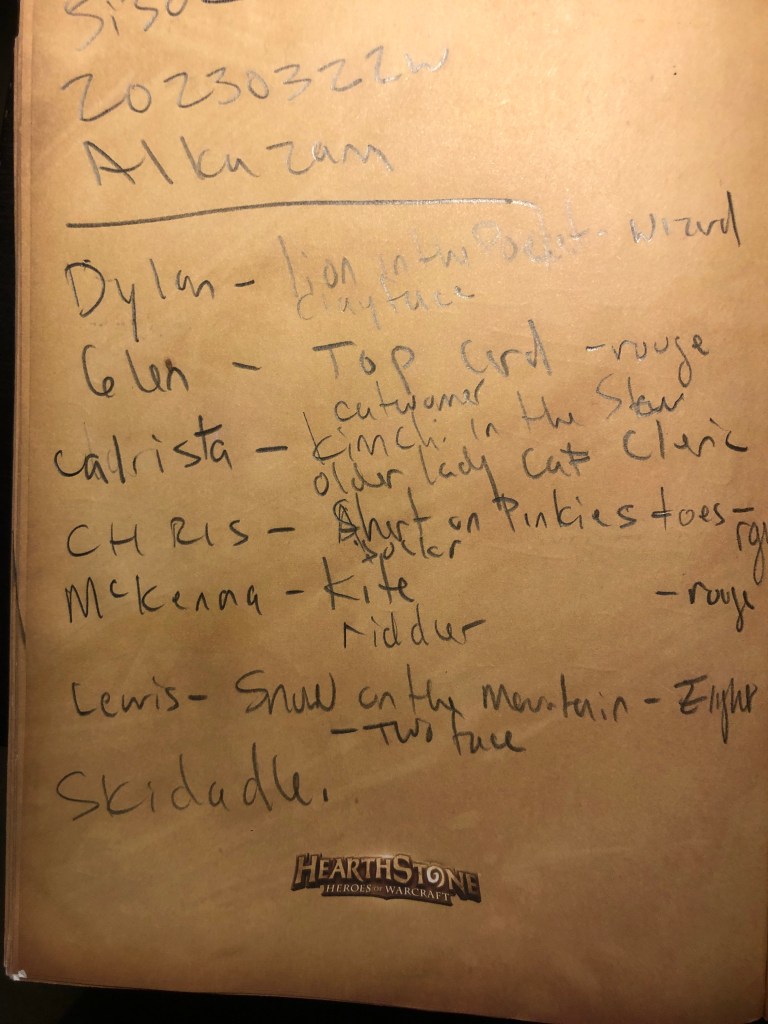 20230322w
Alkazam
Dylan - lion in the - wizard
clayface
Glen - Top Card - rouge
catwomer
Calrista - Kimchi in the Stew Cleric
older lady Cat
CHRIS - Short on Pinkies toes - rgu
McKenna - Kite - rouge
riddler
Lewis - Snow on the Mountain -
- Two face
Skidadle.
HEARTHSTONE
HEROES OF WARCRAFT